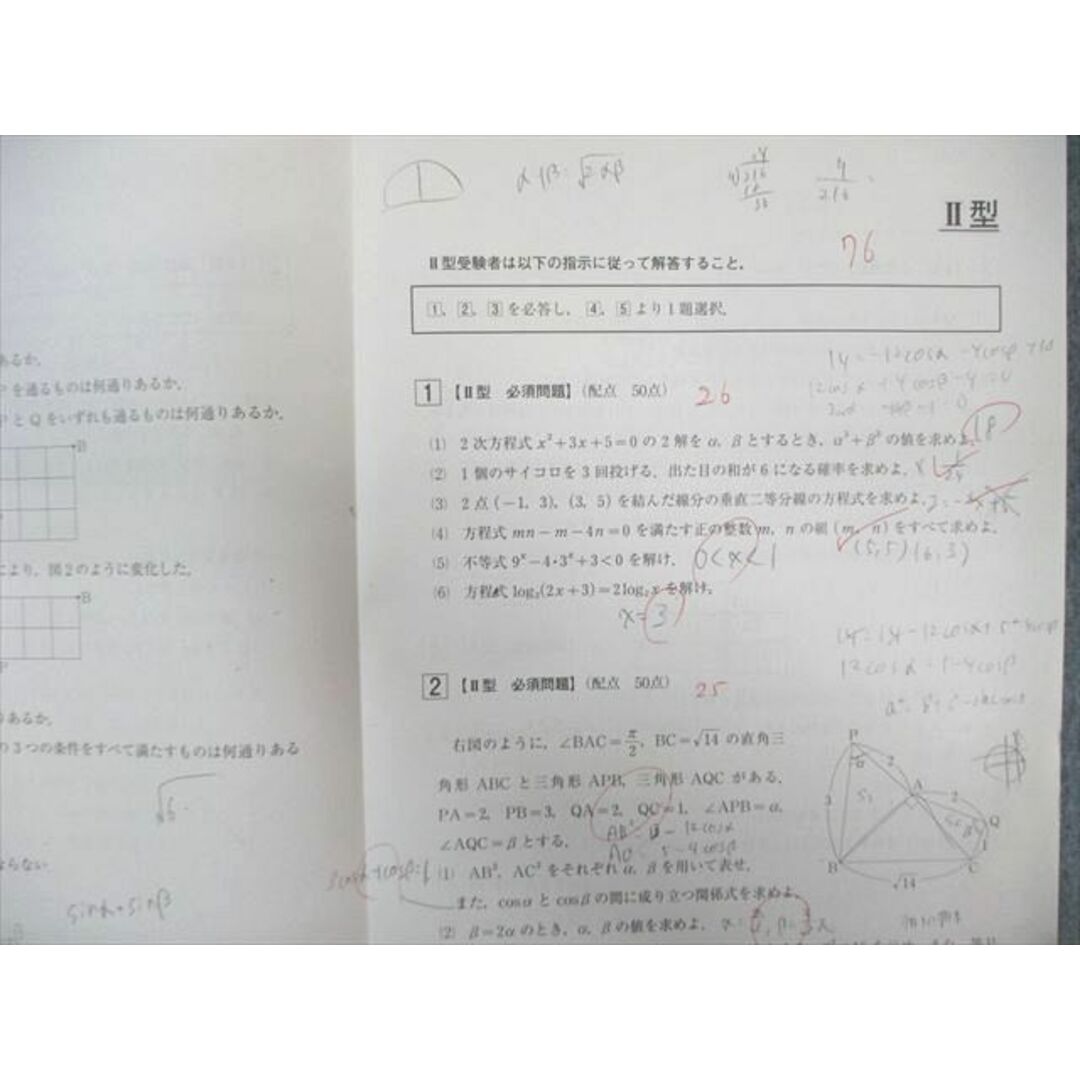 あるか.
Pを通るものは何通りあるか.
PとQをいずれも通るものは何通りあるか.
B
により, 図2のように変化した.
B
P
あるか.
の3つの条件をすべて満たすものは何通りある
ならない
√6
sinα+sinβ
αβ=√2αβ
4
216
Ⅱ型
76
Ⅱ型受験者は以下の指示に従って解答すること.
1, 2, 3 を必答し, 4, 5 より1題選択.
14=-12cosα-4cosβ+18
1 【Ⅱ型 必須問題】(配点 50点) 26
(1) 2次方程式 x²+3x+5=0 の2解を α, β とするとき, α³+β³ の値を求めよ. 18
(2) 1個のサイコロを3回投げる. 出た目の和が6になる確率を求めよ.
(3) 2点(-1, 3), (3, 5) を結んだ線分の垂直二等分線の方程式を求めよ.
(4) 方程式 mn-m-4n=0 を満たす正の整数 m, n の組 (m, n) をすべて求めよ.
(5,5)(6,3)
(5) 不等式 9ˣ-4・3ˣ+3<0 を解け. 0<x<1
(6) 方程式 log₂(2x+3)=2log₂x を解け.
x=3
12cosα=1-4cosβ
2 【Ⅱ型 必須問題】(配点 50点) 25
右図のように, ∠BAC=π/2, BC=√14 の直角三
角形 ABC と三角形 APB, 三角形 AQC がある.
PA=2, PB=3, QA=2, QC=1, ∠APB=α,
∠AQC=β とする.
AB²=13-12cosα
AC²=5-4cosβ
(1) AB², AC² をそれぞれ α, β を用いて表せ.
また, cosα と cosβ の間に成り立つ関係式を求めよ.
3cosα+cosβ=1
(2) β=2α のとき, α, β の値を求めよ.
P
2
3
A
2
Q
1
B
C
√14